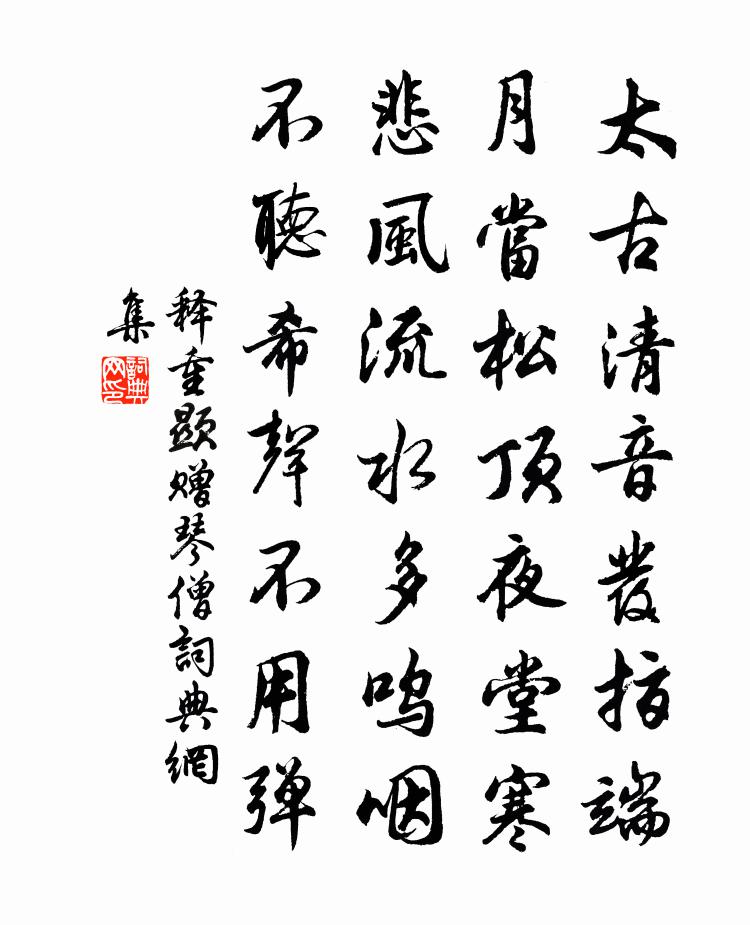 太古清音發指端
月當松頂夜堂寒
悲風流水多鸣咽
不聽希聲不用弹
释重顯赠琴僧詞典網
集
詞典網印